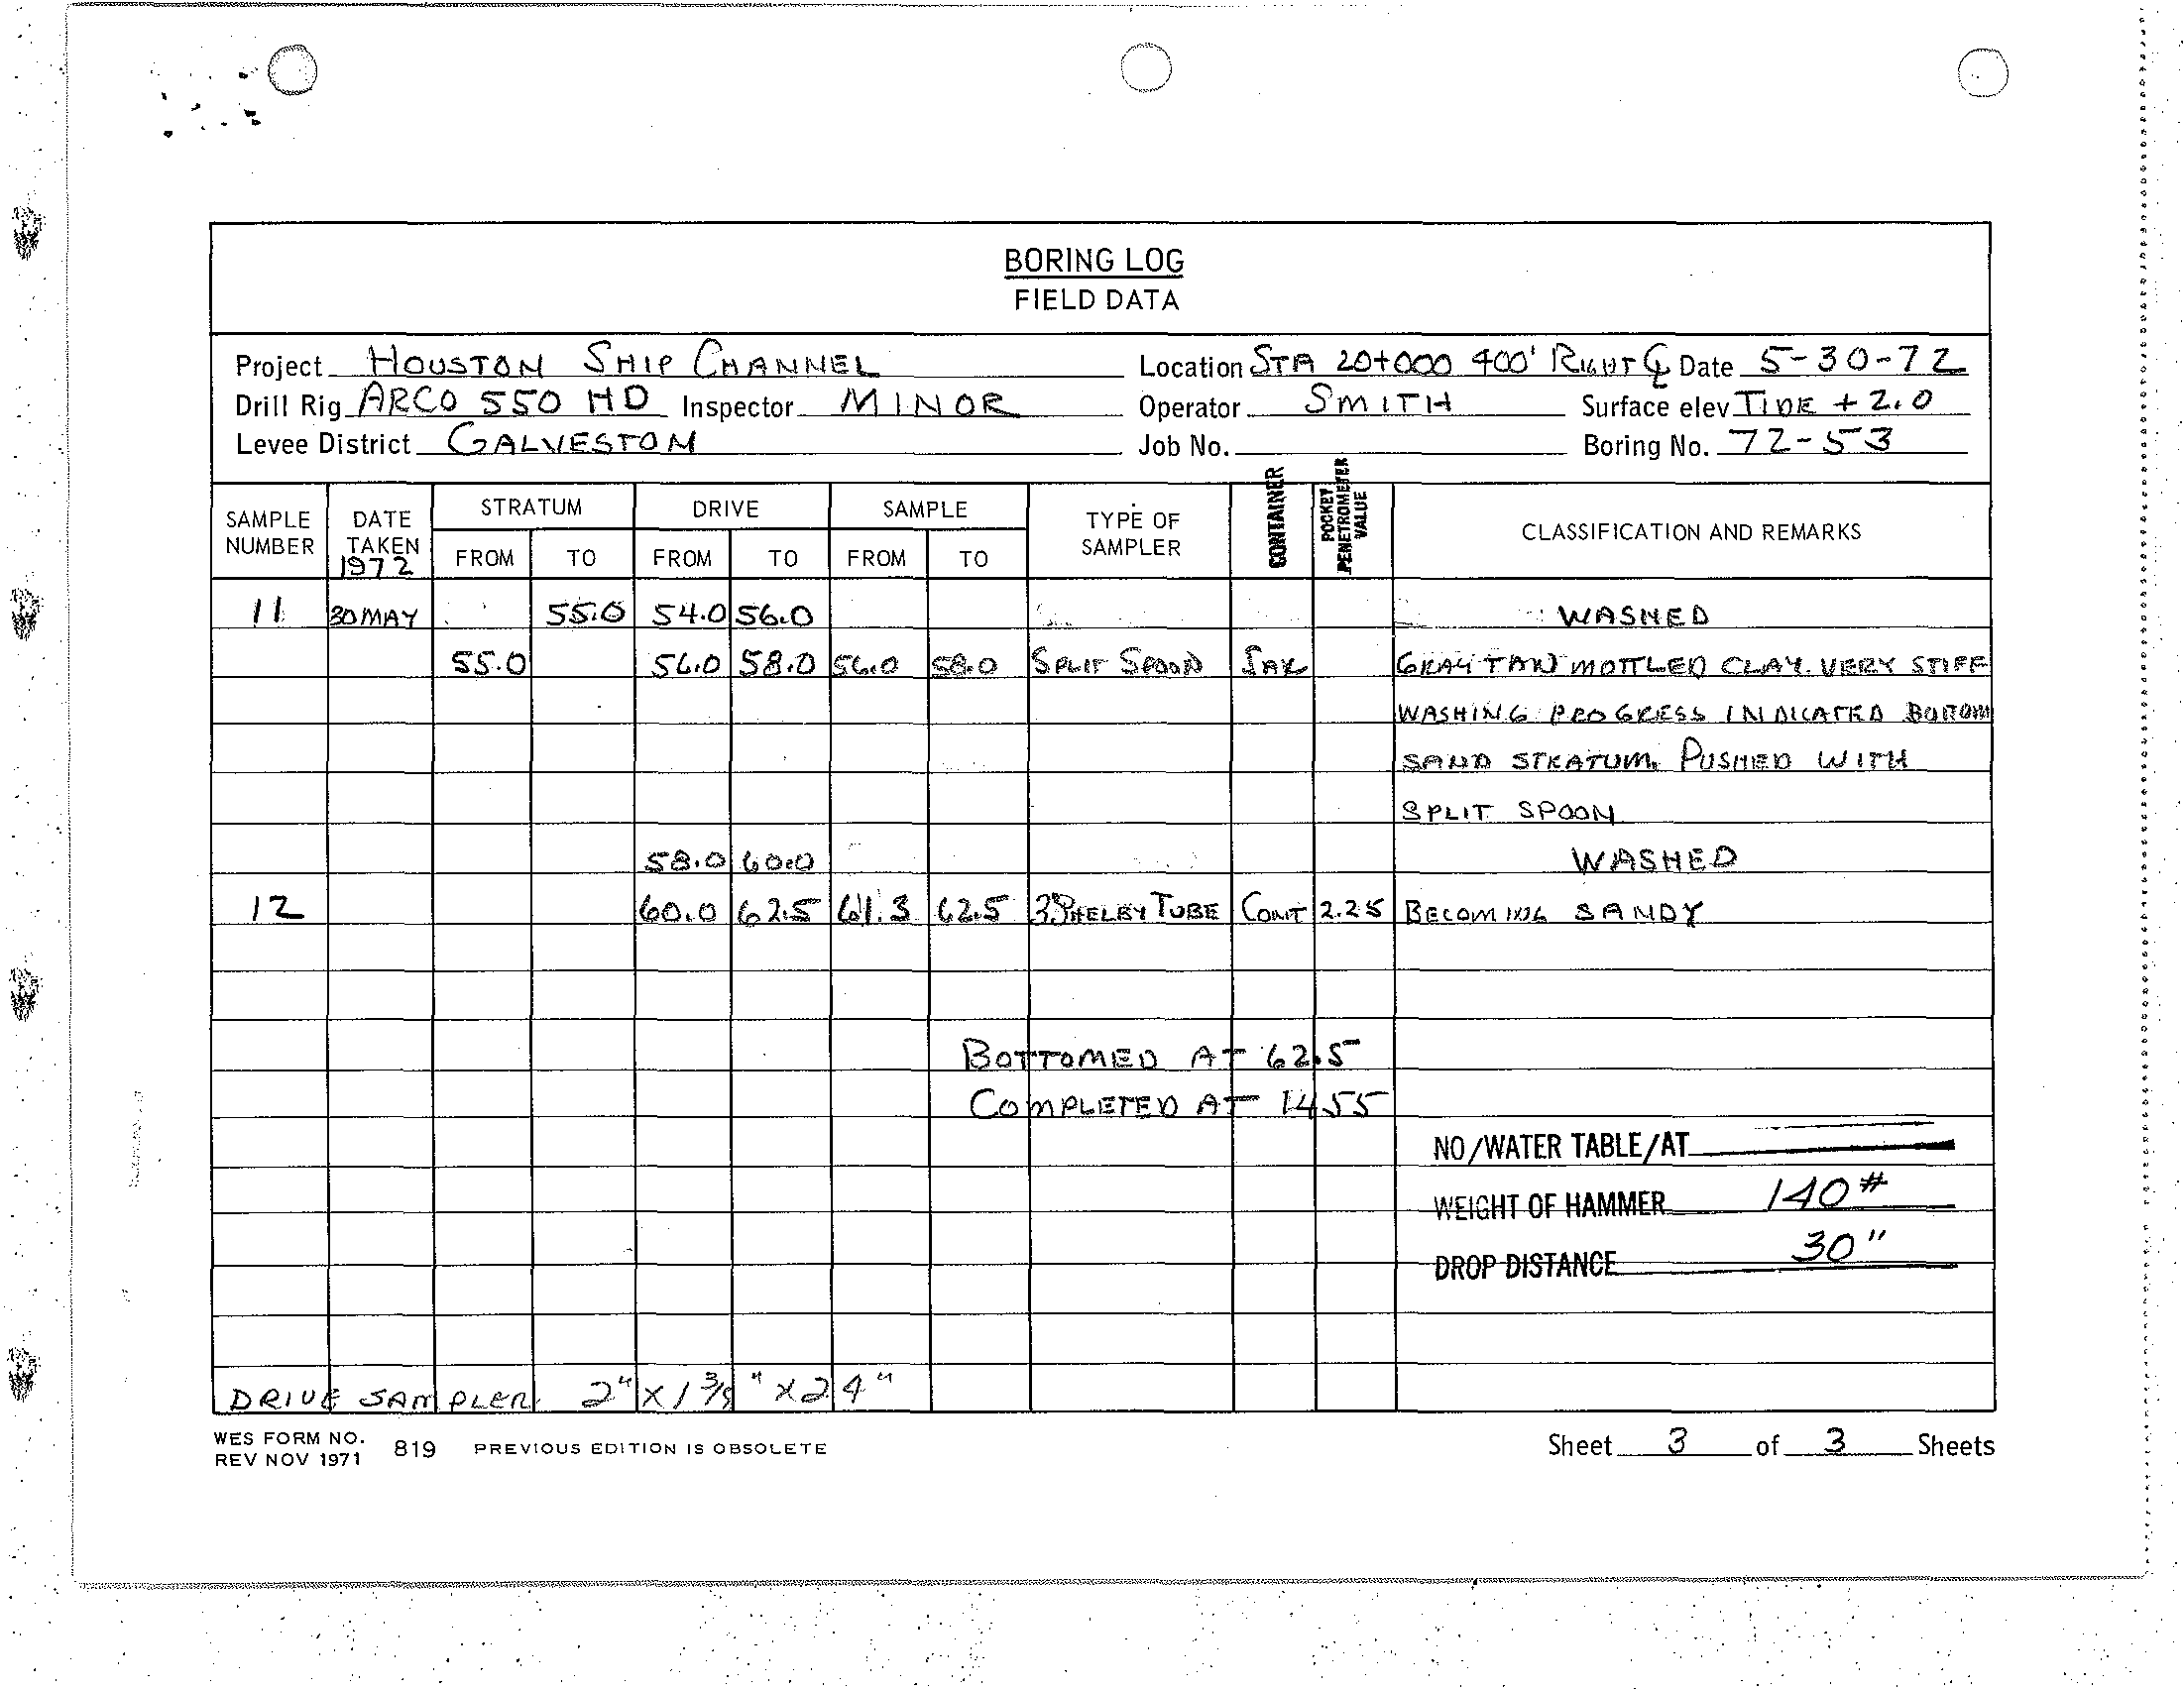 BORING LOG
FIELD DATA
Project HOUSTON SHIP CHANNEL Location STA 20+000 400' RIGHT ℄ Date 5-30-72
Drill Rig ARCO 550 HD Inspector MINOR Operator SMITH Surface elev TIDE + 2.0
Levee District GALVESTON Job No. Boring No. 72-53
SAMPLE NUMBER DATE TAKEN 1972 STRATUM FROM TO DRIVE FROM TO SAMPLE FROM TO TYPE OF SAMPLER CONTAINER POCKET PENETROMETER VALUE CLASSIFICATION AND REMARKS
11 30 MAY 55.0 54.0 56.0 WASHED
55.0 56.0 58.0 56.0 58.0 SPLIT SPOON JAR GRAY TAN MOTTLED CLAY. VERY STIFF
WASHING PROGRESS INDICATED BOTTOM
SAND STRATUM. PUSHED WITH
SPLIT SPOON
58.0 60.0 WASHED
12 60.0 62.5 61.3 62.5 3" SHELBY TUBE CONT 2.25 BECOMING SANDY
BOTTOMED AT 62.5
COMPLETED AT 1455
NO/WATER TABLE/AT
WEIGHT OF HAMMER 140#
DROP DISTANCE 30"
DRIVE SAMPLER 2" X 1 3/8" X 24"
WES FORM NO. 819 PREVIOUS EDITION IS OBSOLETE
REV NOV 1971
Sheet 3 of 3 Sheets